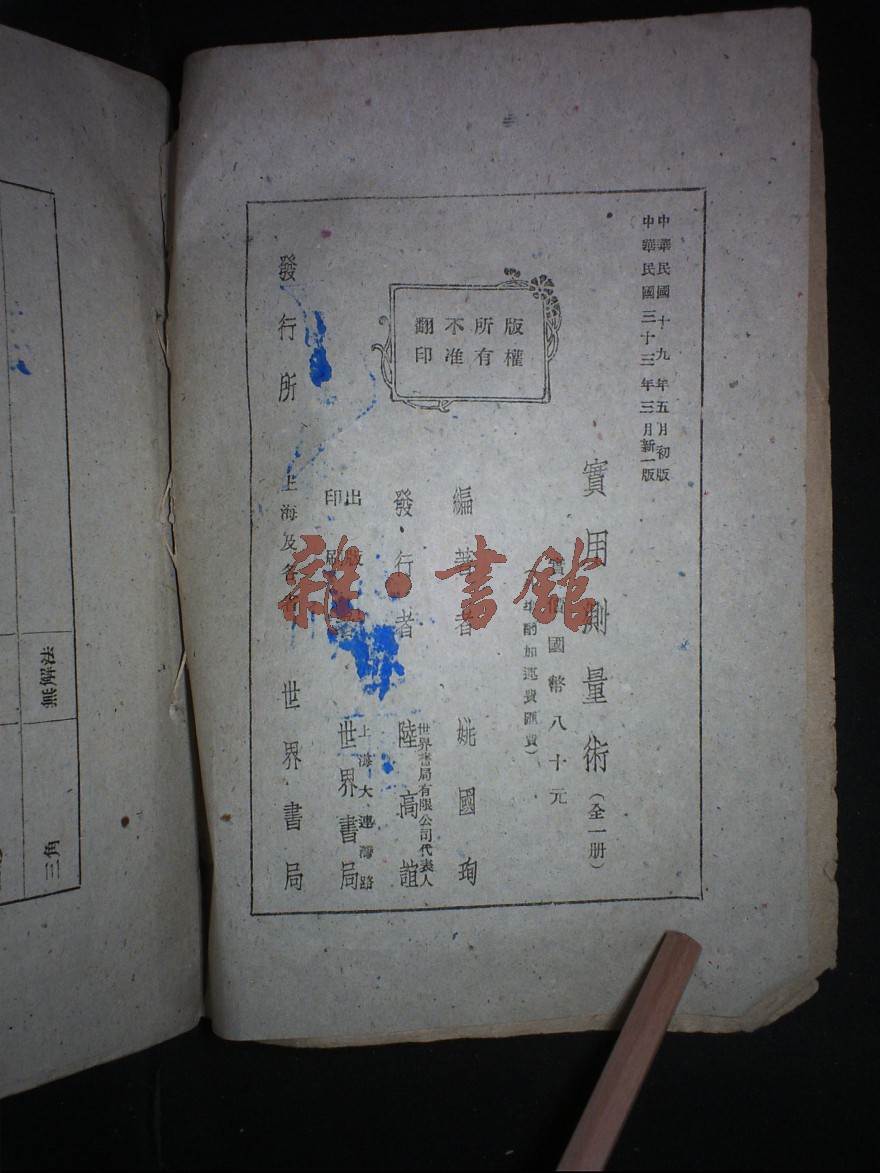 中華民國十九年五月初版
中華民國三十三年三月新一版
實用測量術(全一册)
實價國幣八十元
埠酌加運費匯費)
版權
所有
不准
翻印
編著者 姚國珣
發行者 世界書局有限公司代表人 陸高誼
出版 印刷 上海大連灣路 世界書局
發行所 上海及各省 世界書局
無解法
三角
雜·書館